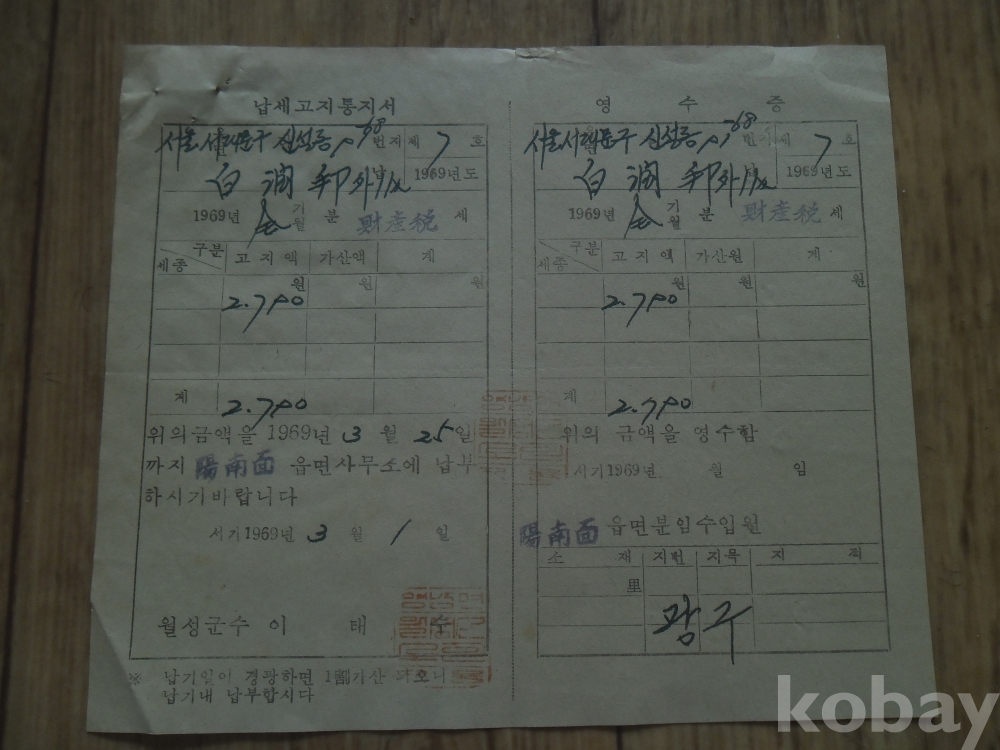 납세고지통지서
서울 서대문구 신설동 번지 제 7 호
1969년도
1969년 기 월 분 財産税 세
구분 세종 고지액 가산액 계
원 원 원
2.700
계 2.700
위의금액을 1969년 3 월 25일
까지 陽南面 읍면사무소에 납부
하시기바랍니다
서기1969년 3 월 1 일
월성군수 이 태 수
※ 납기일이 경과하면 1割가산 되오니
납기내 납부합시다
영 수 증
서울 서대문구 신설동 번지 제 7 호
1969년도
1969년 기 월 분 財産税 세
구분 세종 고지액 가산원 계
원 원 원
2.700
계 2.700
위의 금액을 영수함
서기1969년 월 임
陽南面 읍면분임수입원
소 재 지번 지목 지 적
里
광구
kobay